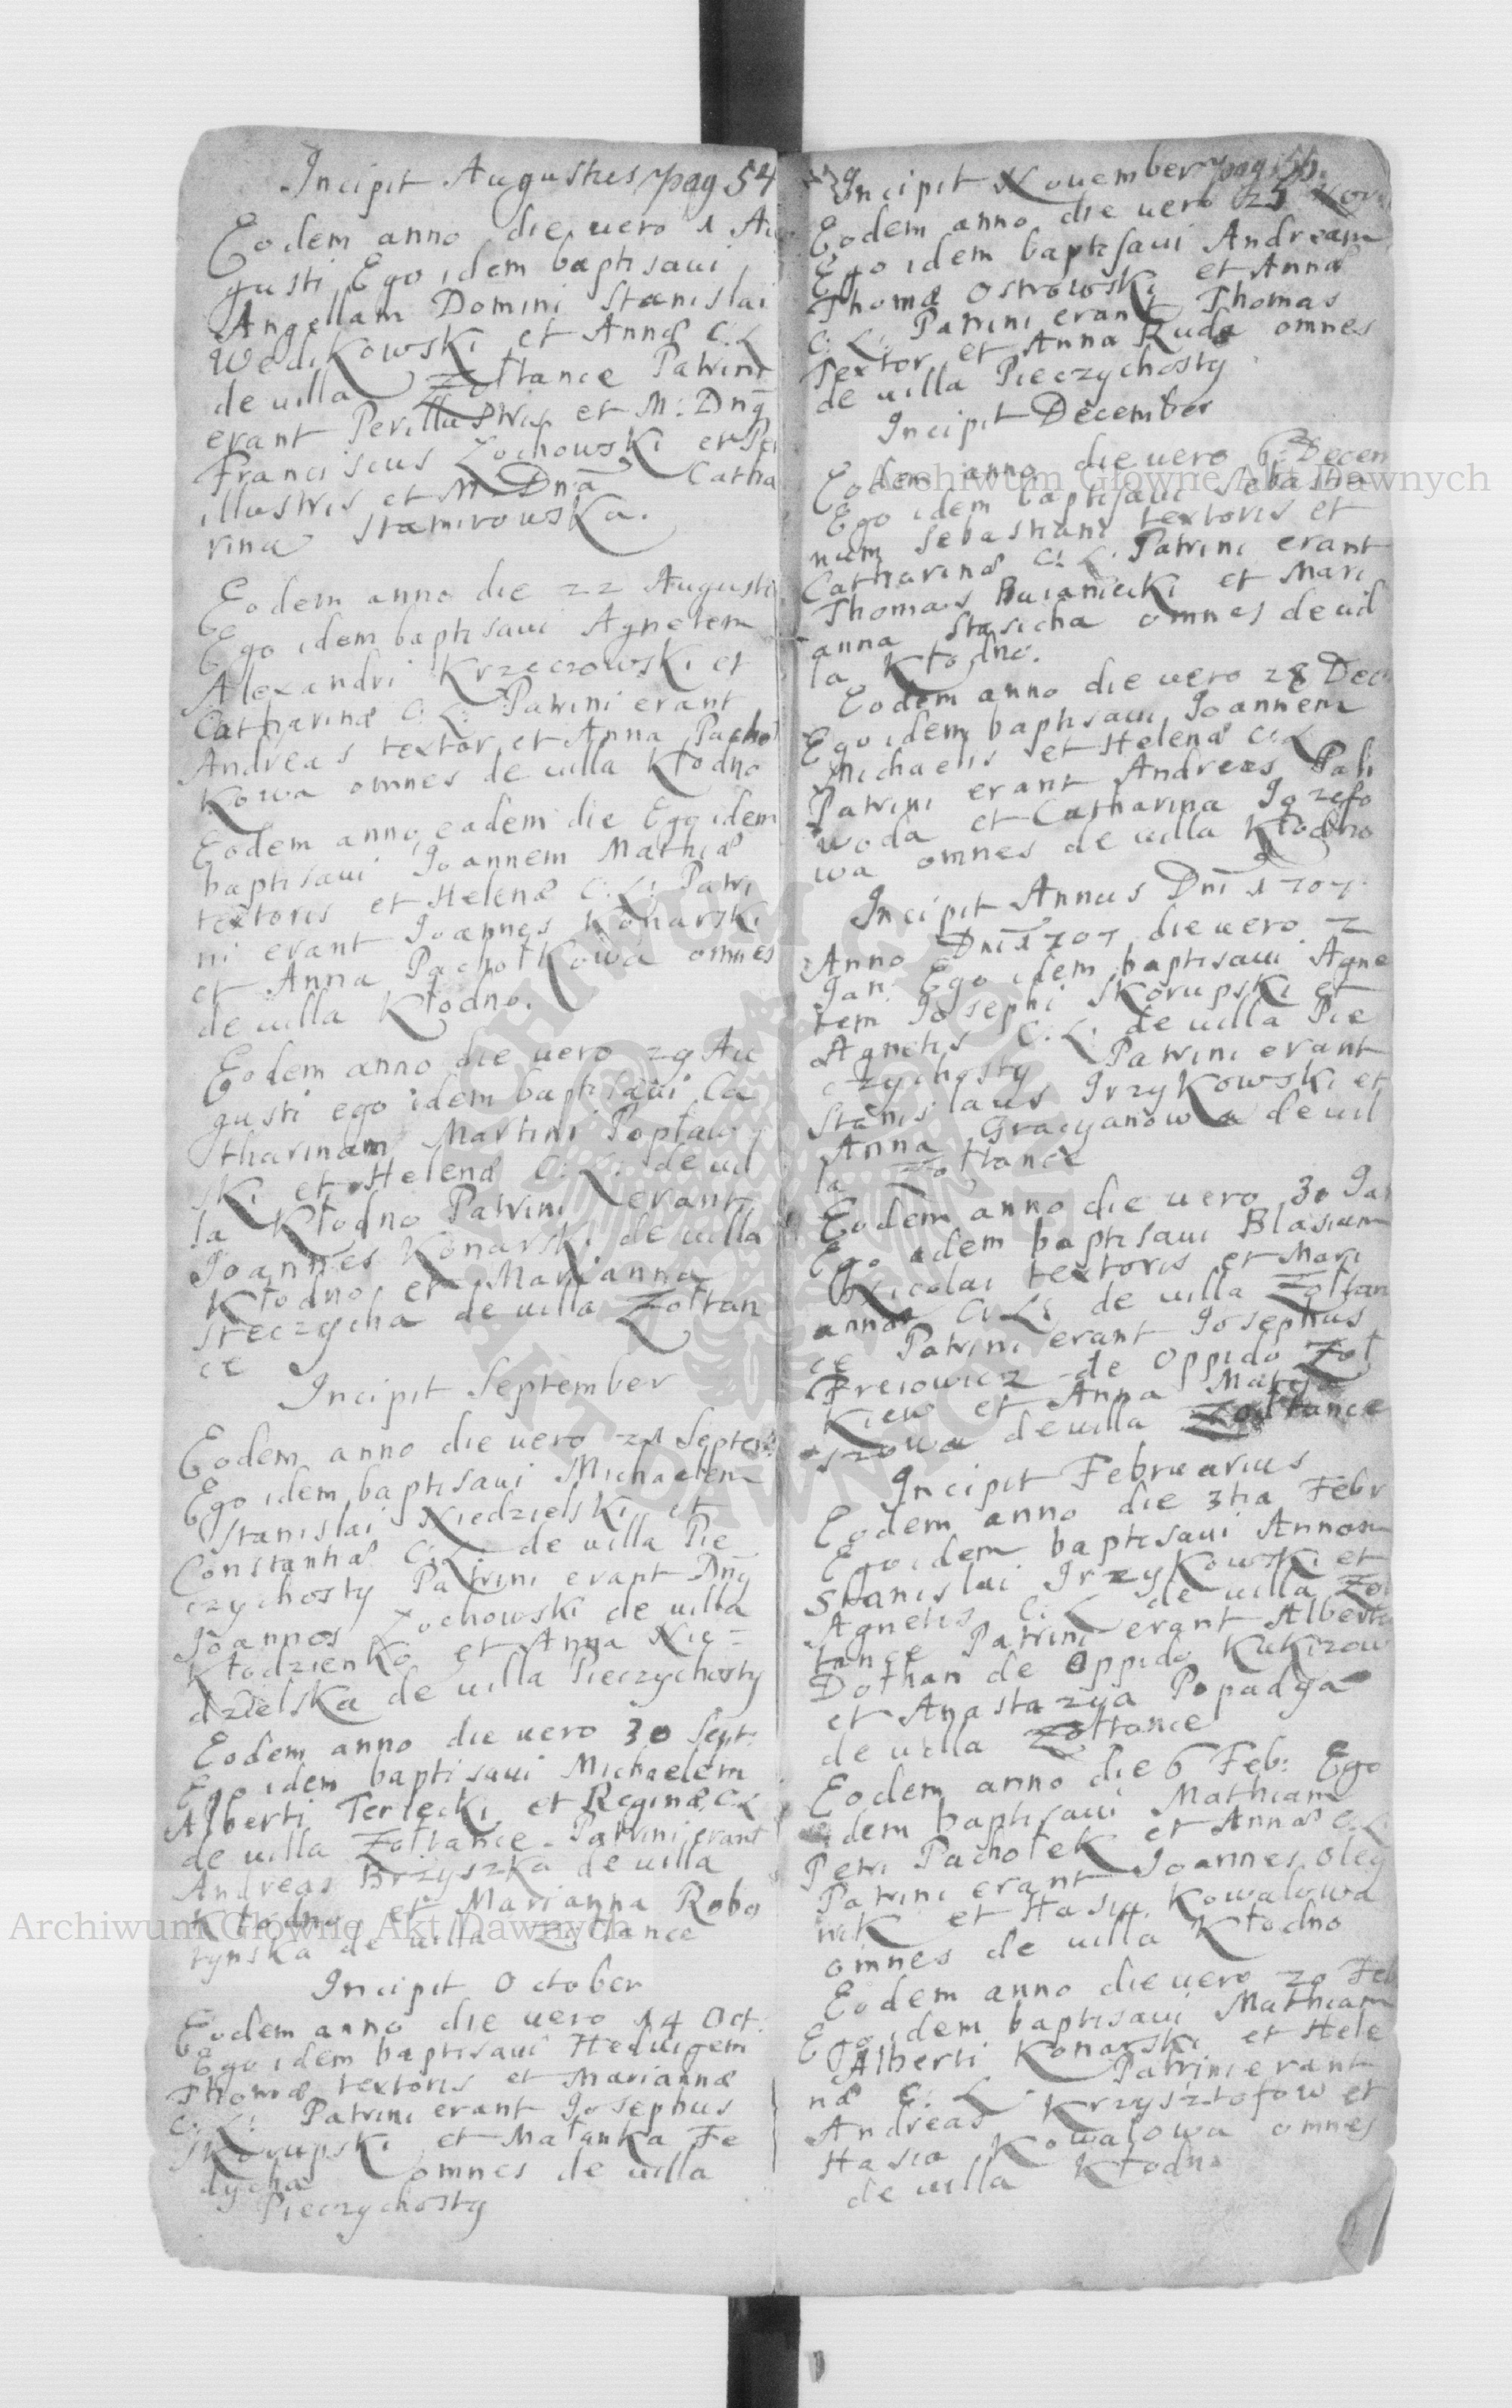 Incipit Augustus pag 54
Eodem anno die vero 1 Au
gusti Ego idem baptisavi
Angellam Domini Stanislai
Wedikowski et Annæ C. L
de villa Zołtance Patrini
erant Perillustris et M: Dnỹ
Franciscus Zochowski et Per
illustris et M. Dna Catha
rina Stamirowska.
Eodem anno die 22 Augusti
Ego idem baptisavi Agnetem
Alexandri Krzeczowski et
Catharinæ C: L: Patrini erant
Andreas textor et Anna Pachoł
kowa omnes de villa Kłodno
Eodem anno eadem die Ego idem
baptisavi Joannem Mathiæ
textoris et Helenæ C: L: Patri
ni erant Joannes Konarski
et Anna Pachołkowa omnes
de villa Kłodno.
Eodem anno die vero 29 Au
gusti ego idem baptisavi Ca
tharinam Martini Popław
ski et Helenæ C: L: de vil
la Kłodno Patrini erant
Joannes Konarski de villa
Kłodno et Marianna
Steczycha de villa Zołtan
ce
Incipit September
Eodem anno die vero 21 Septem:
Ego idem baptisavi Michaelem
Stanislai Niedzielski et
Constantiæ C: L: de villa Pie
czychosty Patrini erant Dnỹ
Joannes Zochowski de villa
Kłodzienko et Anna Nie=
dzielska de villa Pieczychosty
Eodem anno die vero 30 Sept:
Ego idem baptisavi Michaelem
Alberti Terlecki et Reginæ C: L
de villa Zołtance Patrini erant
Andreas Brzyszka de villa
Kłodno et Marianna Robo
tynska de villa Zołtance
Incipit October
Eodem anno die vero 14 Oct:
Ego idem baptisavi Hedvigem
Thomæ textoris et Mariannæ
C: L: Patrini erant Josephus
Skorupski et Małanka Fe
dycha omnes de villa
Pieczychosty
Incipit November pag 55.
Eodem anno die vero 25 Nov
Ego idem baptisavi Andream
Thomæ Ostrowski et Annæ
C: L: Patrini erant Thomas
Textor et Anna Ruda omnes
de villa Pieczychosty
Incipit December
Eodem anno die vero 6 Decem
Ego idem baptisavi Sebastia
num Sebastiani textoris et
Catharinæ C: L: Patrini erant
Thomas Buianiecki et Mari
anna Stasicha omnes de vil
la Kłodno.
Eodem anno die vero 28 Dec
Ego idem baptisavi Joannem
Michaelis et Helenæ C: L
Patrini erant Andreas Pali
woda et Catharina Jozefo
wa omnes de villa Kłodno
Incipit Annus Dni 1707.
Anno Dni 1707 die vero 2
Jan: Ego idem baptisavi Agne
tem Josephi Skorupski et
Agnetis C: L: de villa Pie
czychosty Patrini erant
Stanislaus Jrzykowski et
Anna Gracyanowa de vil
la Zołtance
Eodem anno die vero 30 Jan
Ego idem baptisavi Blasium
Nicolai textoris et Mari
annæ C: L: de villa Zołtan
ce Patrini erant Josephus
Freiowicz de Oppido Zoł
kiew et Anna Matya
szowa de villa Zołtance
Incipit Februarius
Eodem anno die 3tia Febr
Ego idem baptisavi Annam
Stanislai Jrzykowski et
Agnetis C: L de villa Zoł
tance Patrini erant Albertus
Dothan de Oppido Kukizow
et Anastazya Popadya
de villa Zołtance
Eodem anno die 6 Feb: Ego
idem baptisavi Mathiam
Petri Pachołek et Annæ C: L
Patrini erant Joannes Oley
nik et Hasia Kowalowa
omnes de villa Kłodno
Eodem anno die vero 20 Feb
Ego idem baptisavi Mathiam
Alberti Konarski et Hele
næ C: L: Patrini erant
Andreas Krzysztofow et
Hasia Kowalowa omnes
de villa Kłodno
Archiwum Główne Akt Dawnych
Archiwum Główne Akt Dawnych
ARCHIWUM GŁÓWNE AKT DAWNYCH